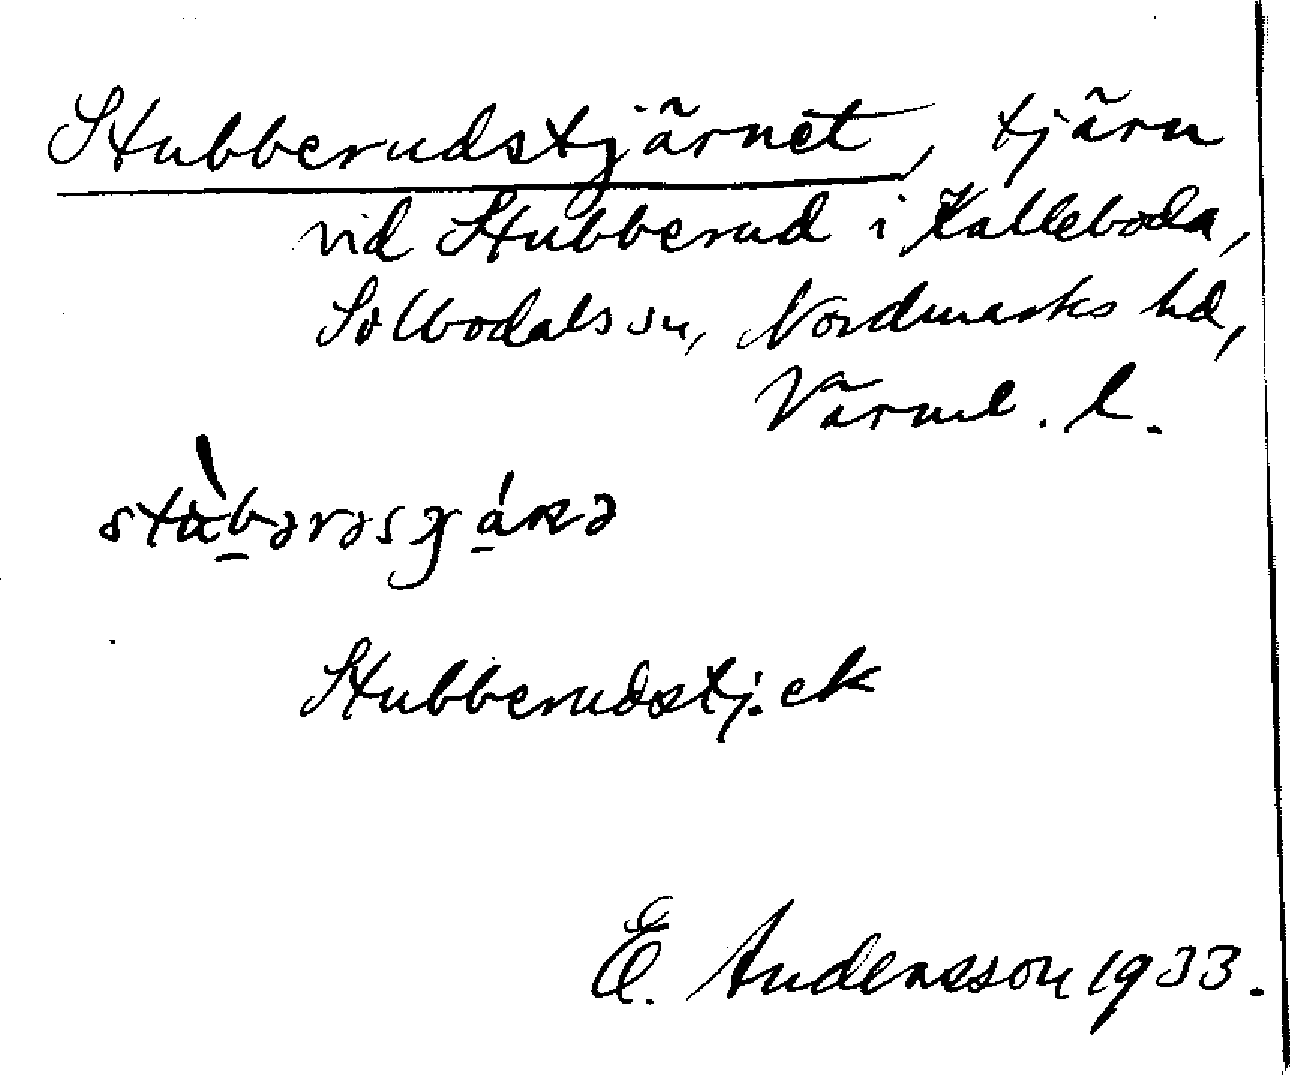 Stubberudstjärnet, tjärn
vid Stubberud i Kalleboda,
Sillbodals sn, Nordmarks hd,
Värml. l.
Stubberudstj. ek
E. Andersson 1933.